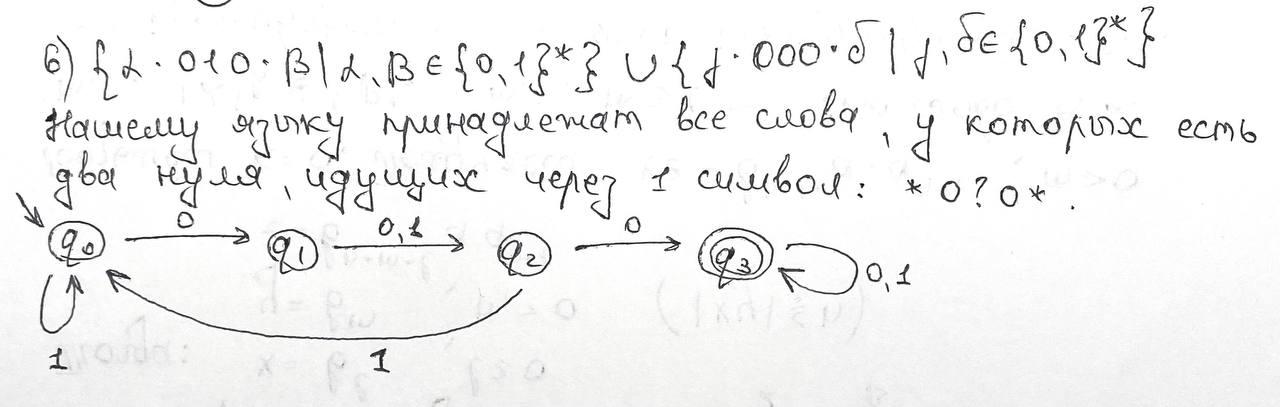 б) {α · 010 · β | α, β ∈ {0, 1}*} ∪ {γ · 000 · δ | γ, δ ∈ {0, 1}*}
Нашему языку принадлежат все слова, у которых есть
два нуля, идущих через 1 символ: *0?0*.
0 0,1 0
q0 q1 q2 q3 0,1
1 1